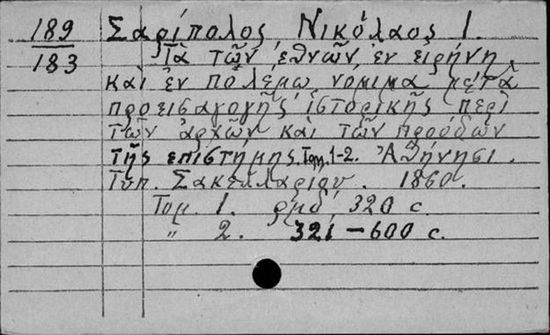 189 Σαρίπολος Νικόλαος Ι.
183 Τὰ τῶν ἐθνῶν ἐν εἰρήνῃ
καὶ ἐν πολέμω νόμιμα μετὰ
προεισαγογῆς ἱστορικῆς περὶ
τῶν ἀρχῶν καὶ τῶν προόδων
τῆς ἐπιστήμης. Τομ. 1-2. Ἀθήνησι.
Τυπ. Σακελλαρίου. 1860.
Τομ. 1. ρμδ', 320 с.
" 2. 321 — 600 с.